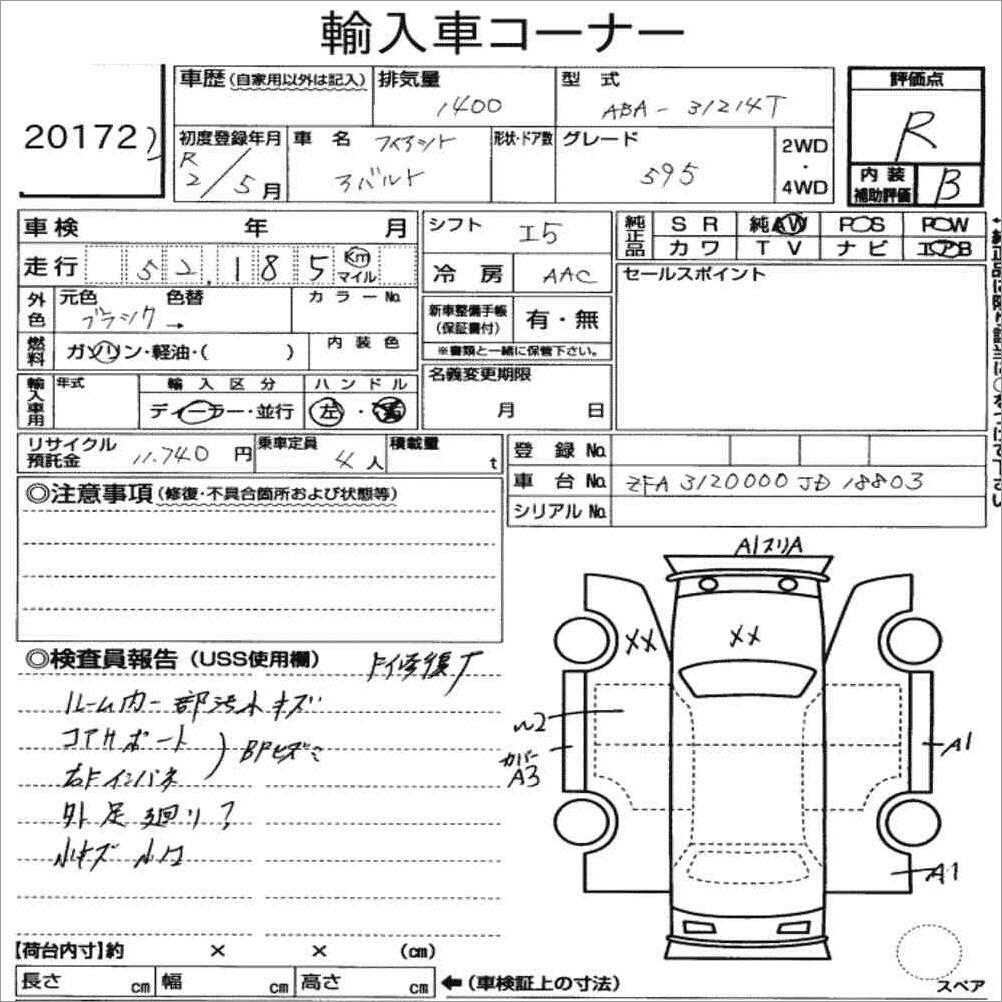 輸入車コーナー
20172
車歴(自家用以外は記入) 排気量 1400 型式 ABA-31214T
評価点 R
初度登録年月 R2/5月 車名 フィアット アバルト 形状・ドア数 グレード 595 2WD・4WD
内装補助評価 B
車検 年 月
シフト I5
純正品 SR 純AW PS PW
カワ TV ナビ エアB
走行 52,185 Km マイル
冷房 AAC
セールスポイント
外色 元色 ブラック→ 色替 カラーNo.
新車整備手帳(保証書付) 有・無
※書類と一緒に保管下さい。
燃料 ガソリン・軽油・( ) 内装色
輸入車用 年式 輸入区分 ディーラー・並行 ハンドル 左・右
名義変更期限 月 日
リサイクル預託金 11.740円 乗車定員 4人 積載量 t
登録No.
車台No. ZFA3120000JD18803
シリアルNo.
◎注意事項(修復・不具合箇所および状態等)
A1スリA
◎検査員報告(USS使用欄)
XX XX
ルーム内一部汚れキズ
コアサポート
BPヒズミ
右Fインパネ
外足廻りサ
小キズ 小凹
カバーA3
A1
A1
【荷台内寸】約 × × (cm)
長さ cm 幅 cm 高さ cm ←(車検証上の寸法)
スペア